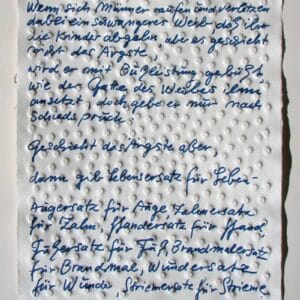 Wenn sich Männer raufen und verletzen
dabei ein schwangeres Weib daß ihr
die Kinder abgehn aber es geschieht
nicht das Ärgste,
wird er mit Bußleistung gebüßt
wie der Gatte des Weibes ihm
ansetzt, doch gebe er nur nach
Schiedsspruch.
Geschieht das Ärgste aber,
dann gib Lebensersatz für Leben –
Augersatz für Auge Zahnersatz
für Zahn, Handersatz für Hand,
Fußersatz für Fuß, Brandmalersatz
für Brandmal, Wundersatz
für Wunde, Striemersatz für Strieme